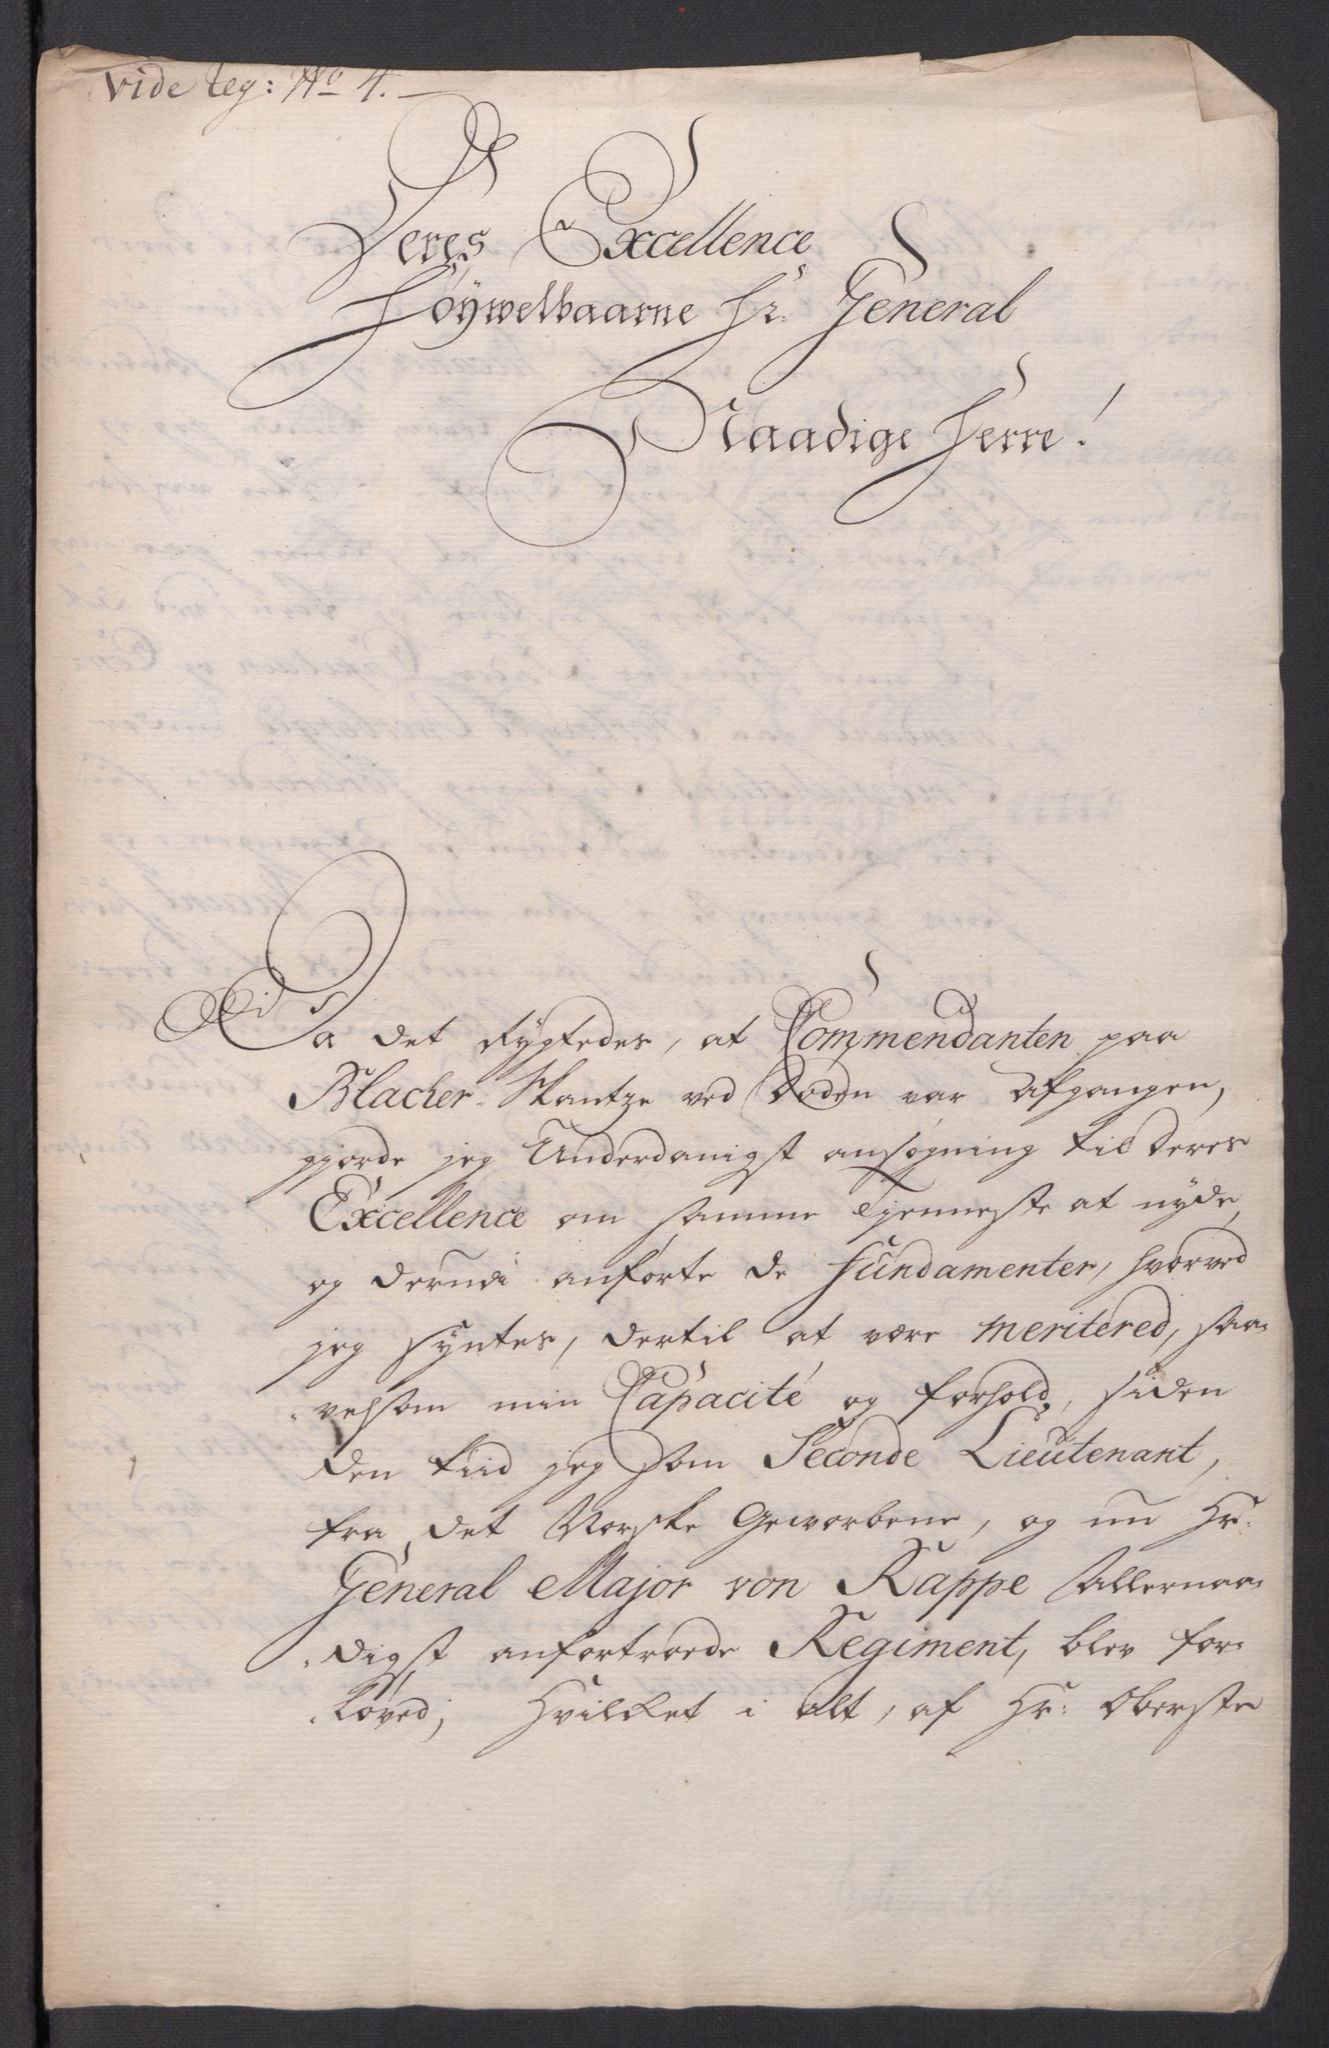 Vide teg: No 4.
Deres Excellence
Høÿwelbaarne Hr: General
Naadige Herre!
Da det rygtedes, at Commendanten paa
Blacher-Skantze ved Døden var Afgangen,
giorde jeg Underdanigst ansøgning til Deres
Excellence om samme Tjenneste at nyde,
og derudi anførte de Fundamenter, hvorved
jeg syntes, dertil at være meritered, saa-
velsom min Capacité og forhold, siden
den tiid jeg som Seconde Lieutenant,
fra det Norske Geworbene, og nu Hr:
General Major von Kappe Allernaa-
digst anfortroede Regiment, blev for-
løved; Hvilket i alt, af Hr: Oberste